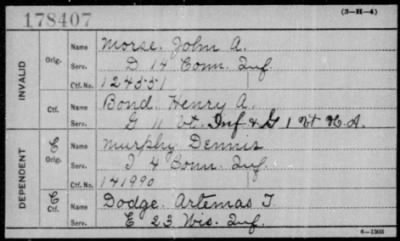 178407
(3-H-4)
INVALID
Orig.
Name Morse, John A.
Serv. D 14 Conn. Inf.
Ctf. No. 124551
Ctf.
Name Bond, Henry A.
Serv. G 11 Vt. Inf & G 1 Vt H. A.
DEPENDENT
C
Orig.
Name Murphy Dennis
Serv. I 4 Conn. Inf.
Ctf. No. 141990
C
Ctf.
Name Dodge, Artemas T.
Serv. E 23 Wis. Inf.